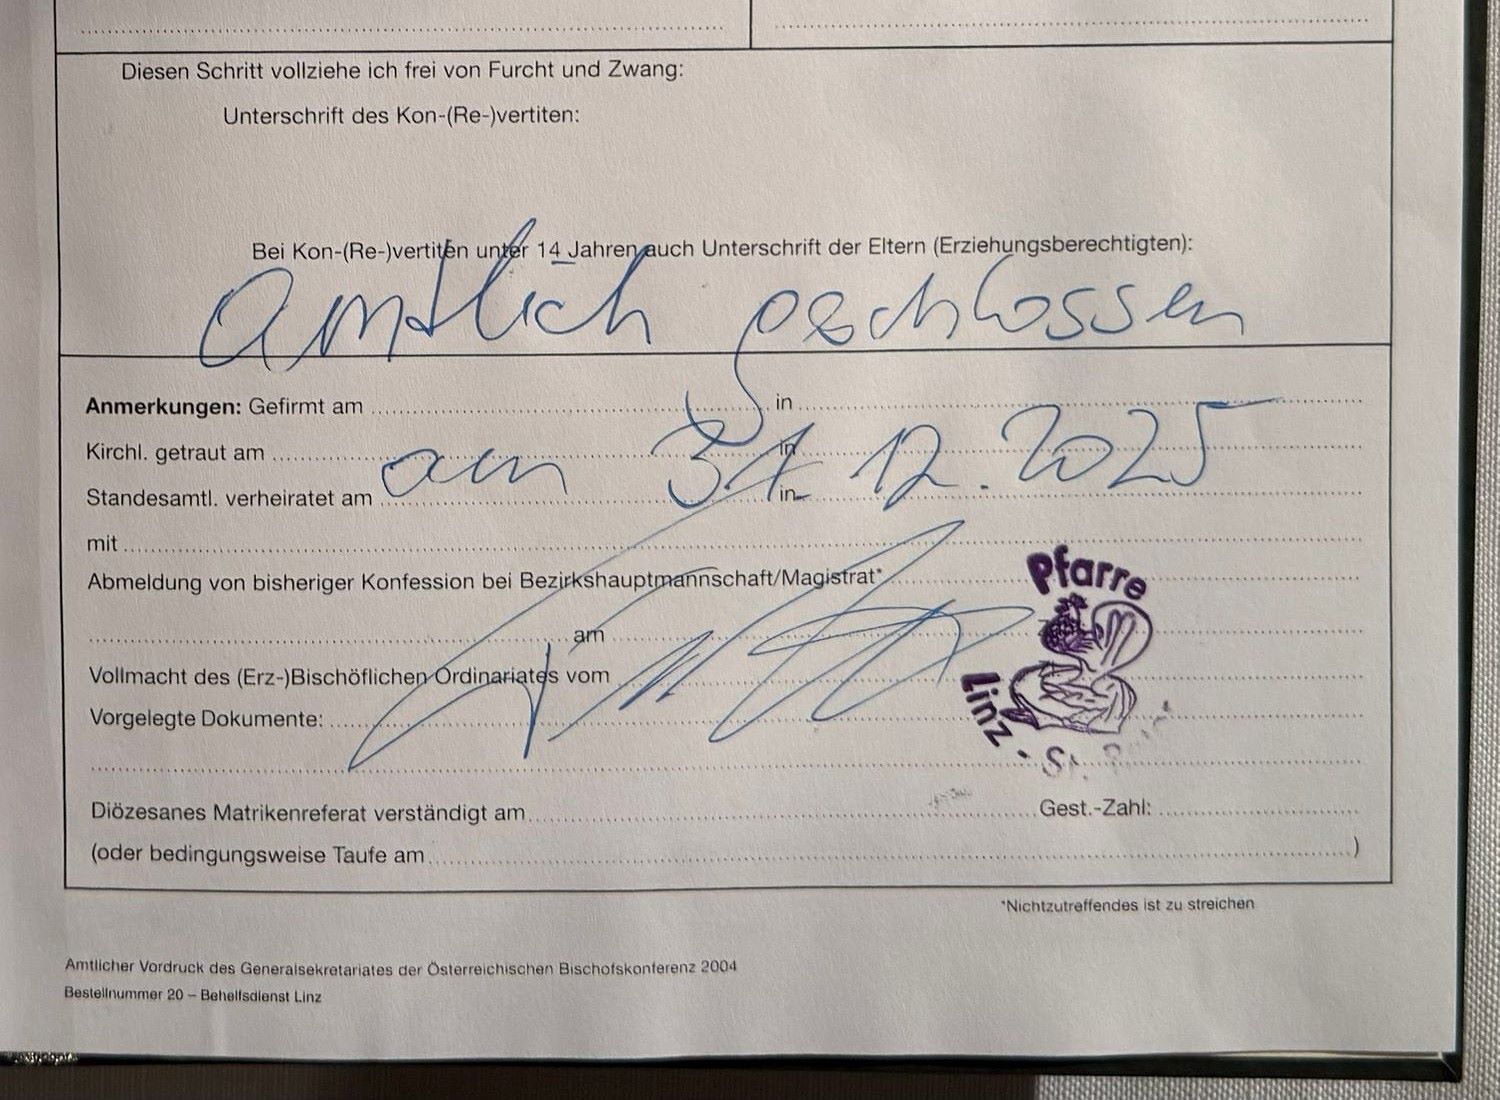 Diesen Schritt vollziehe ich frei von Furcht und Zwang:
Unterschrift des Kon-(Re-)vertiten:
Bei Kon-(Re-)vertiten unter 14 Jahren auch Unterschrift der Eltern (Erziehungsberechtigten):
Amtlich geschlossen
Anmerkungen: Gefirmt am in
Kirchl. getraut am in
am 31. 12. 2025
Standesamtl. verheiratet am in
mit
Abmeldung von bisheriger Konfession bei Bezirkshauptmannschaft/Magistrat*
Pfarre
am
Vollmacht des (Erz-)Bischöflichen Ordinariates vom
Vorgelegte Dokumente:
Linz - St.
Diözesanes Matrikenreferat verständigt am Gest.-Zahl:
(oder bedingungsweise Taufe am )
*Nichtzutreffendes ist zu streichen
Amtlicher Vordruck des Generalsekretariates der Österreichischen Bischofskonferenz 2004
Bestellnummer 20 – Behelfsdienst Linz